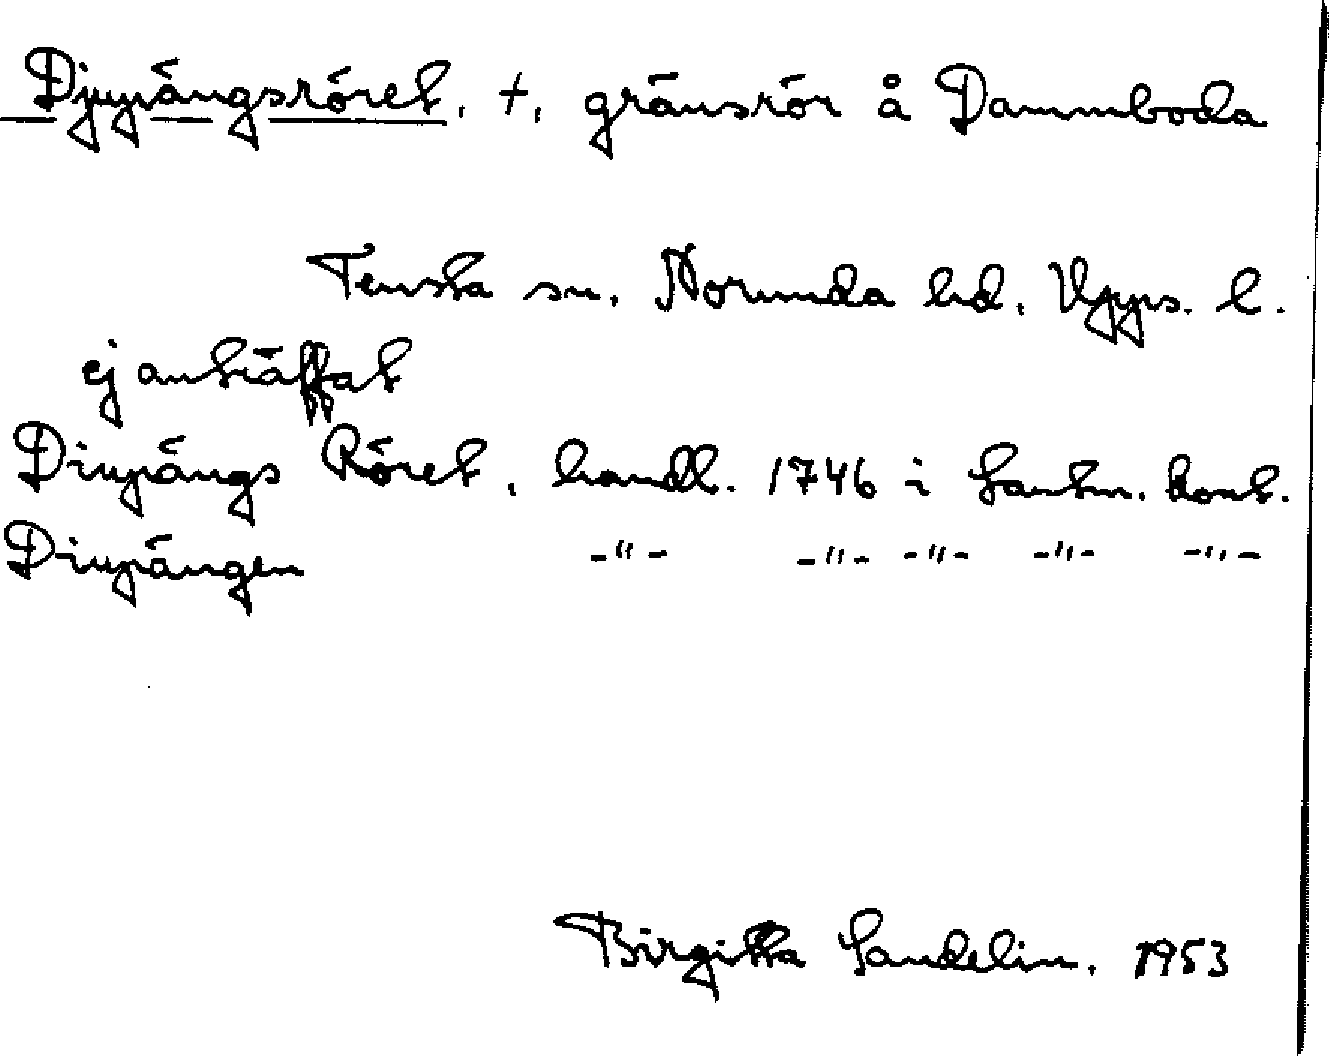 Djupängsröret, +, gränsrör å Dammboda
Tensta sn. Norunda hd, Upps. l.
ej anträffat
Diupängs Röret, handl. 1746 i Lantm. kont.
Diupängen -"- -"- -"- -"- -"-
Birgitta Sandelin. 1953